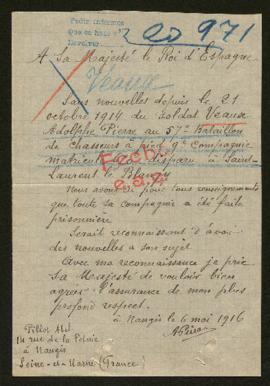 Pedir informes
20971
A Sa Majesté le Roi d'Espagne
Veaux
Sans nouvelles depuis le 21
octobre 1914 du Soldat Veaux
Adolphe Pierre au 57e Bataillon
de Chasseurs à pied 9e Compagnie
matricule disparu à Saint-
Laurent le Blangy
Fecho
Nous avons eu pour tous renseignements
que toute sa compagnie a été faite
prisonnière
Serait reconnaissant d'avoir
des nouvelles à son sujet
Avec ma reconnaissance je prie
Sa Majesté de vouloir bien
agréer l'assurance de mon plus
profond respect.
à Nangis le 6 mai 1916
14 rue de la Poterie
à Nangis
Seine-et-Marne (France)